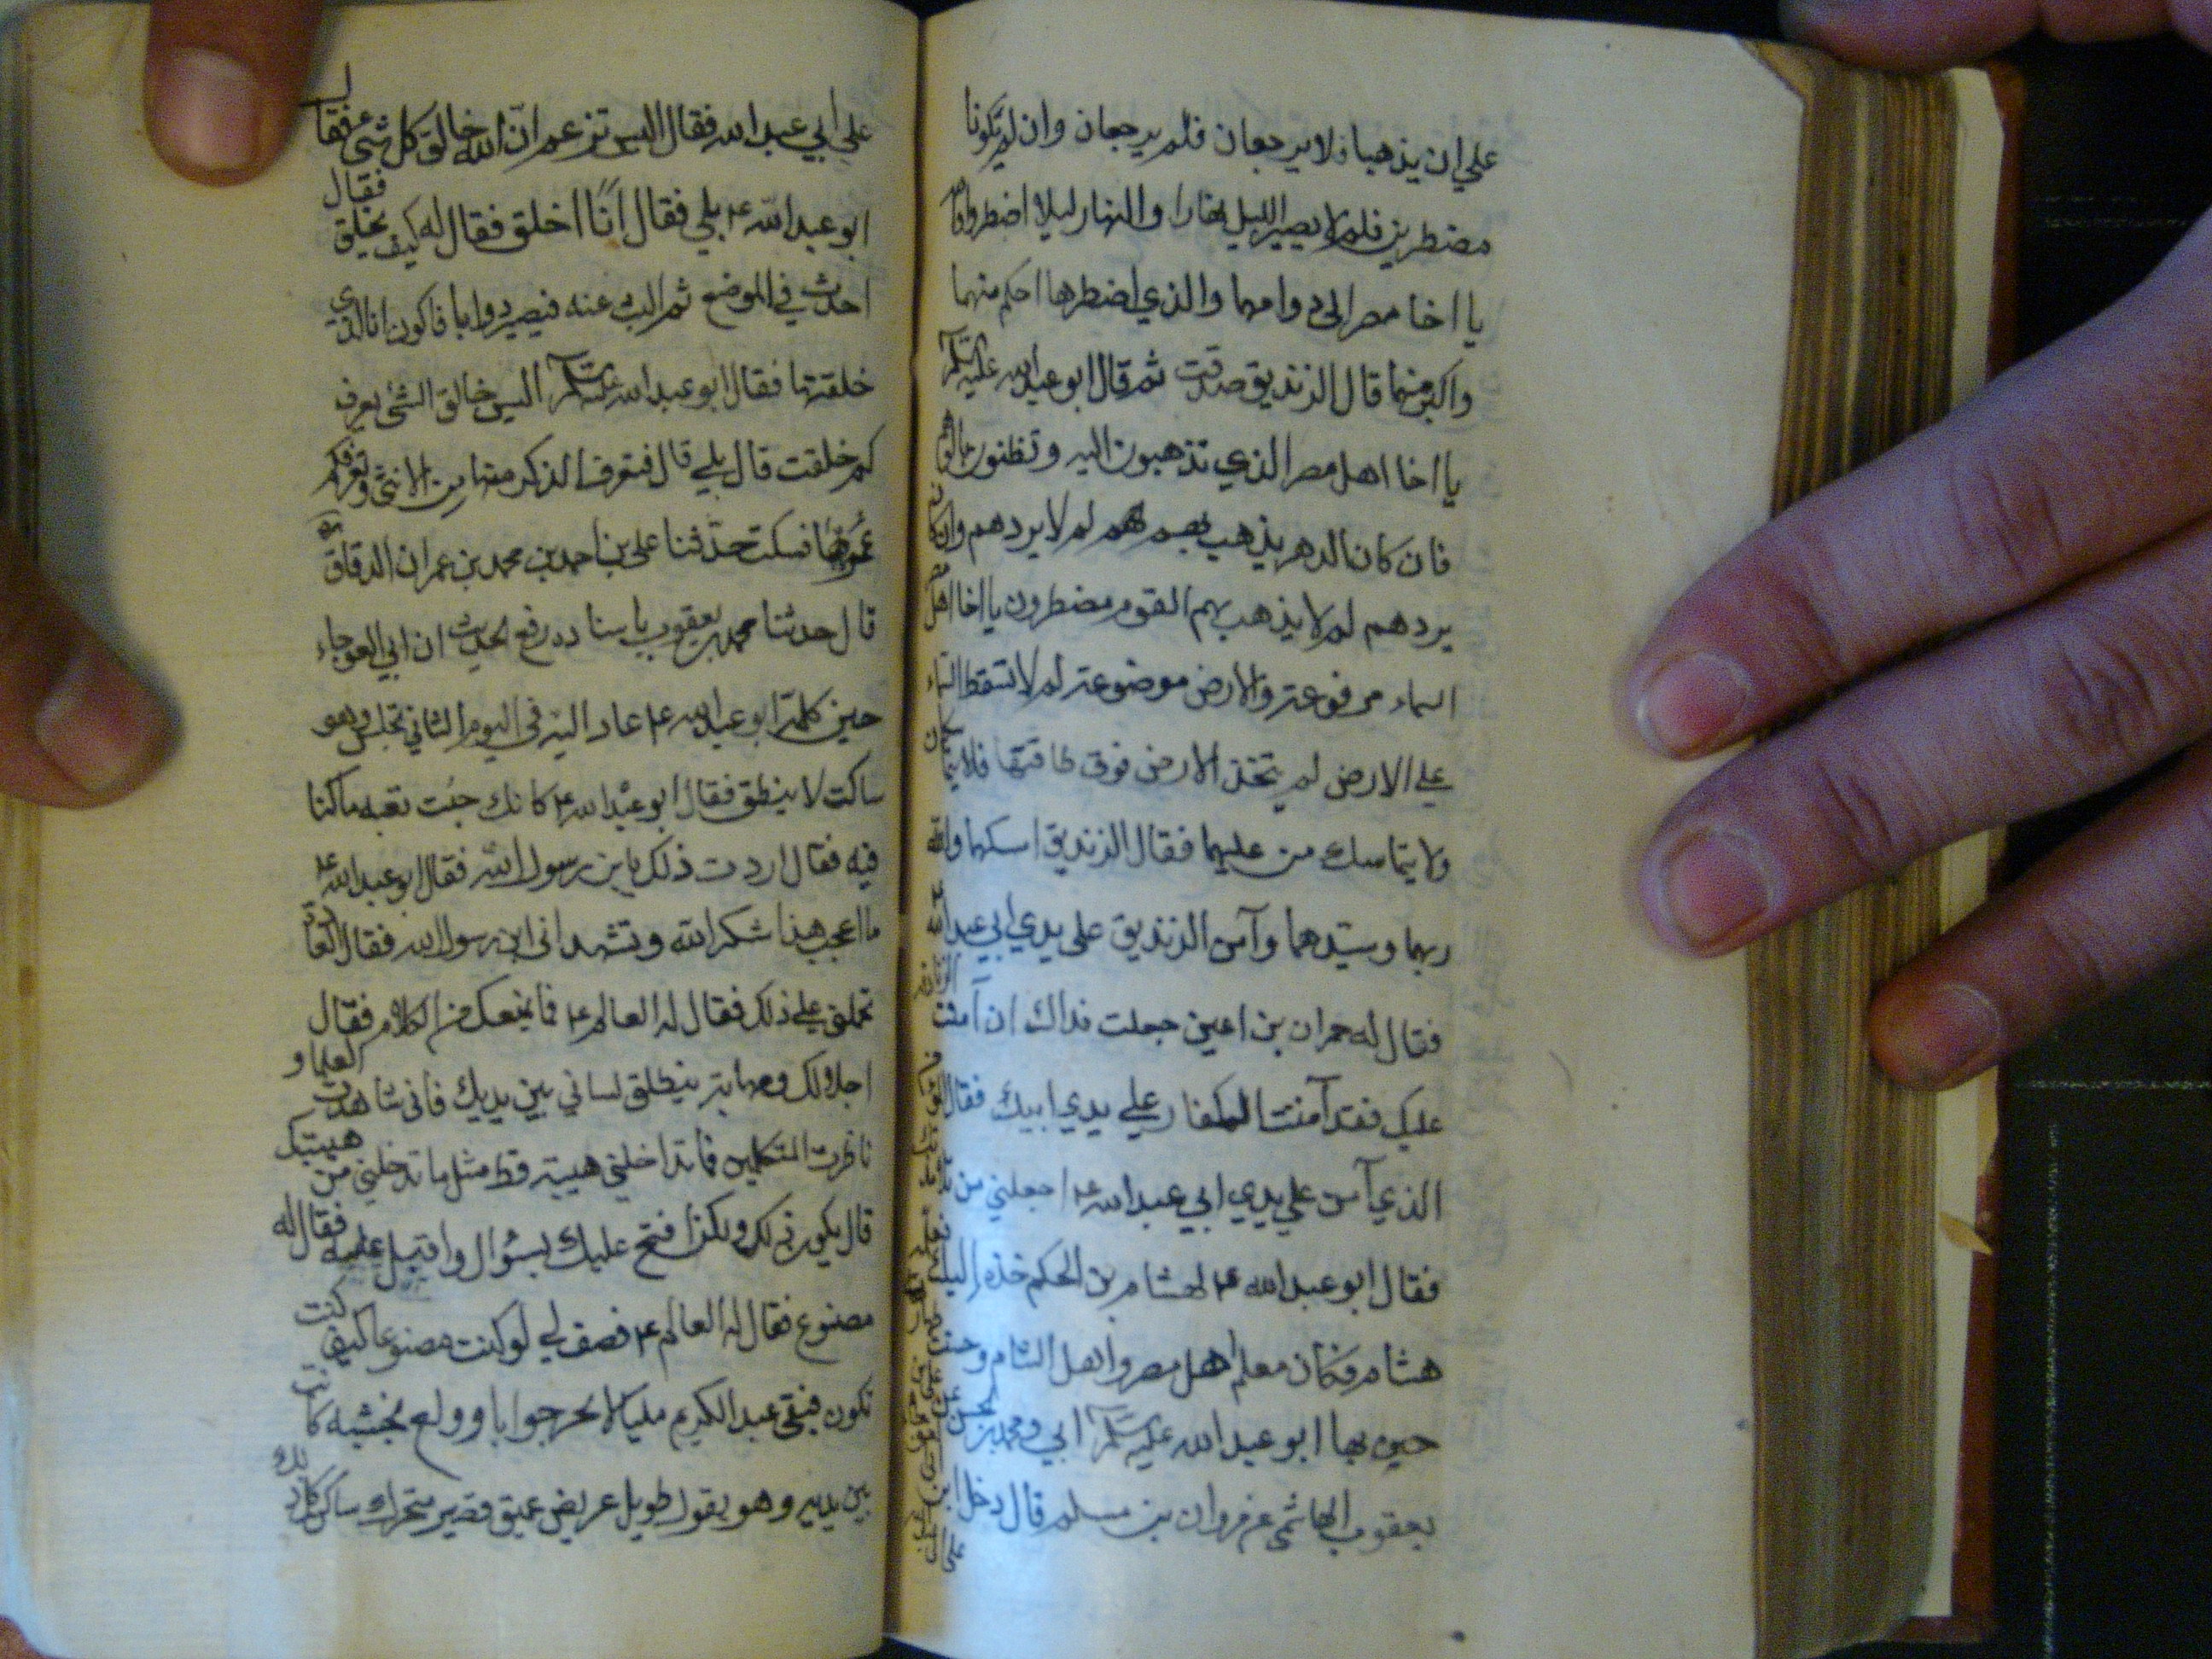 علي ان يذهبا فلا يرجعان فلم يرجعان وان لم يكونا
مضطرين فلم لا يصير الليل نهارا والنهار ليلا اضطروا والله
يا اخا مصر الي دوامهما والذي اضطرها احكم منهما
واكبر منهما قال الزنديق صدقت ثم قال ابو عبد الله عليه السلم
يا اخا اهل مصر الذي تذهبون اليه وتظنون
فان كان الدهر يذهب بهم لم لا يردهم وان كان
يردهم لم لا يذهب بهم القوم مضطرون يا اخا اهل مصر
السماء مرفوعة والارض موضوعة لم لا تسقط السماء
علي الارض لم تنخذ الارض فوق طاقتها فلا يتماسكان
ولا يتماسك من عليهما فقال الزنديق امسكهما والله
ربهما وسيدهما وآمن الزنديق علي يدي ابي عبد الله
فقال له حمران بن اعين جعلت فداك ان آمنت الزنادقة
عليك فقد آمنت الكفار علي يدي ابيك فقال
الذي آمن علي يدي ابي عبد الله ع اجعلني من
فقال ابو عبد الله ع لهشام بن الحكم خذه اليك
هشام فكان معلم اهل مصر واهل الشام
حين بها ابو عبد الله عليه السلم ابي ومحمد بن الحسن
يعقوب الهاشمي عن مروان بن مسلم قال دخل ابن
علي ابي عبد الله فقال اليس تزعم ان الله خالق كل شئ فقال
ابو عبد الله ع بلي فقال انا اخلق فقال له كيف تخلق فقال
احدث في الموضع ثم البث عنه فيصير دوابا فاكون انا الذي
خلقتها فقال ابو عبد الله عليه السلم اليس خالق الشئ يعرف
كم خلقت قال بلي قال فتعرف الذكر منها من الانثي وتعرف كم
عمرها فسكت حدثنا علي بن احمد بن محمد بن عمران الدقاق ره
قال حدثنا محمد بن يعقوب باسناده رفع الحديث ان ابي العوجاء
حين كلمه ابو عبد الله ع عاد اليه في اليوم الثاني تجلس وهو
ساكت لا ينطق فقال ابو عبد الله ع كانك جئت تعبه ما كنا
فيه فقال اردت ذلك يا بن رسول الله فقال ابو عبد الله ع
ما اعجب هذا شكر الله وتشهد اني ابن رسول الله فقال العادة
تحملني علي ذلك فقال له العالم ع فما يمنعك من الكلام فقال
اجلالك ومهابة ينطلق لساني بين يديك فاني شاهدت العلما و
ناظرت المتكلمين فما تداخلني هيبة قط مثل ما تدخلني من هيبتك
قال يكون ذلك ولكن افتح عليك بسؤال واقبل عليه فقال له
مصنوع فقال له العالم ع فصف لي لو كنت مصنوعا كيف كنت
تكون فبقي عبد الكريم مليا لا يحر جوابا وولع بخشبة كانت
بين يديه وهو يقول طويل عريض عميق قصير متحرك ساكن كل ذلك